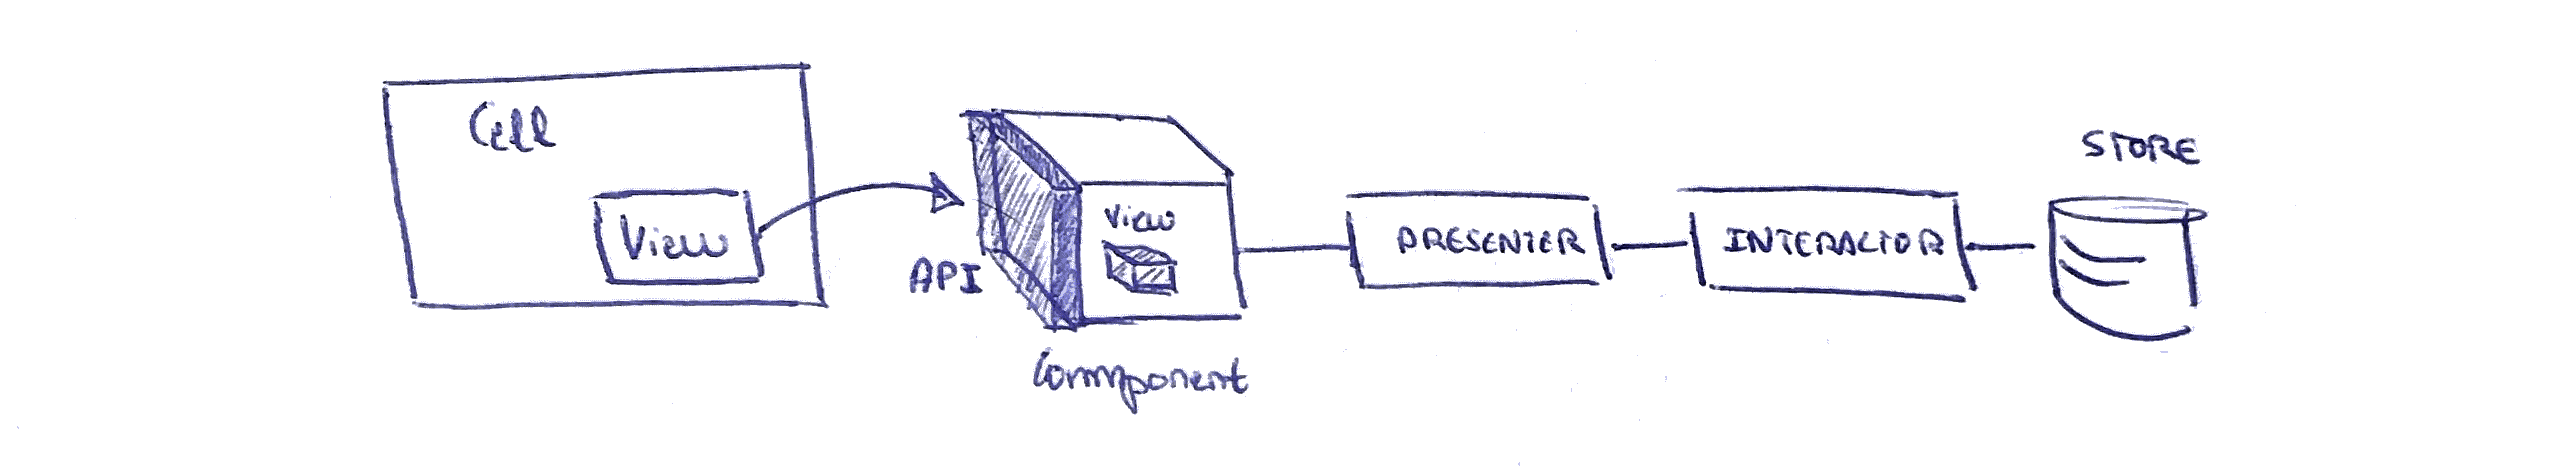 Cell
View
API
View
Component
PRESENTER
INTERACTOR
STORE